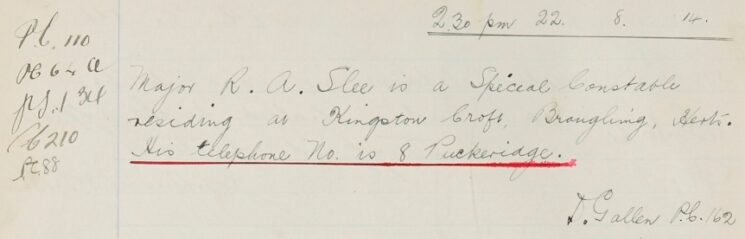 2.30 pm 22. 8. 14.
P.C. 110
PC 64 A
P.S. 1 34
PC 210
PC 88
Major R. A. Slee is a Speceal Constable
residing at Kingston Croft, Braughing, Herts.
His telephone No. is 8 Puckeridge.
T. Gallen P.C. 162